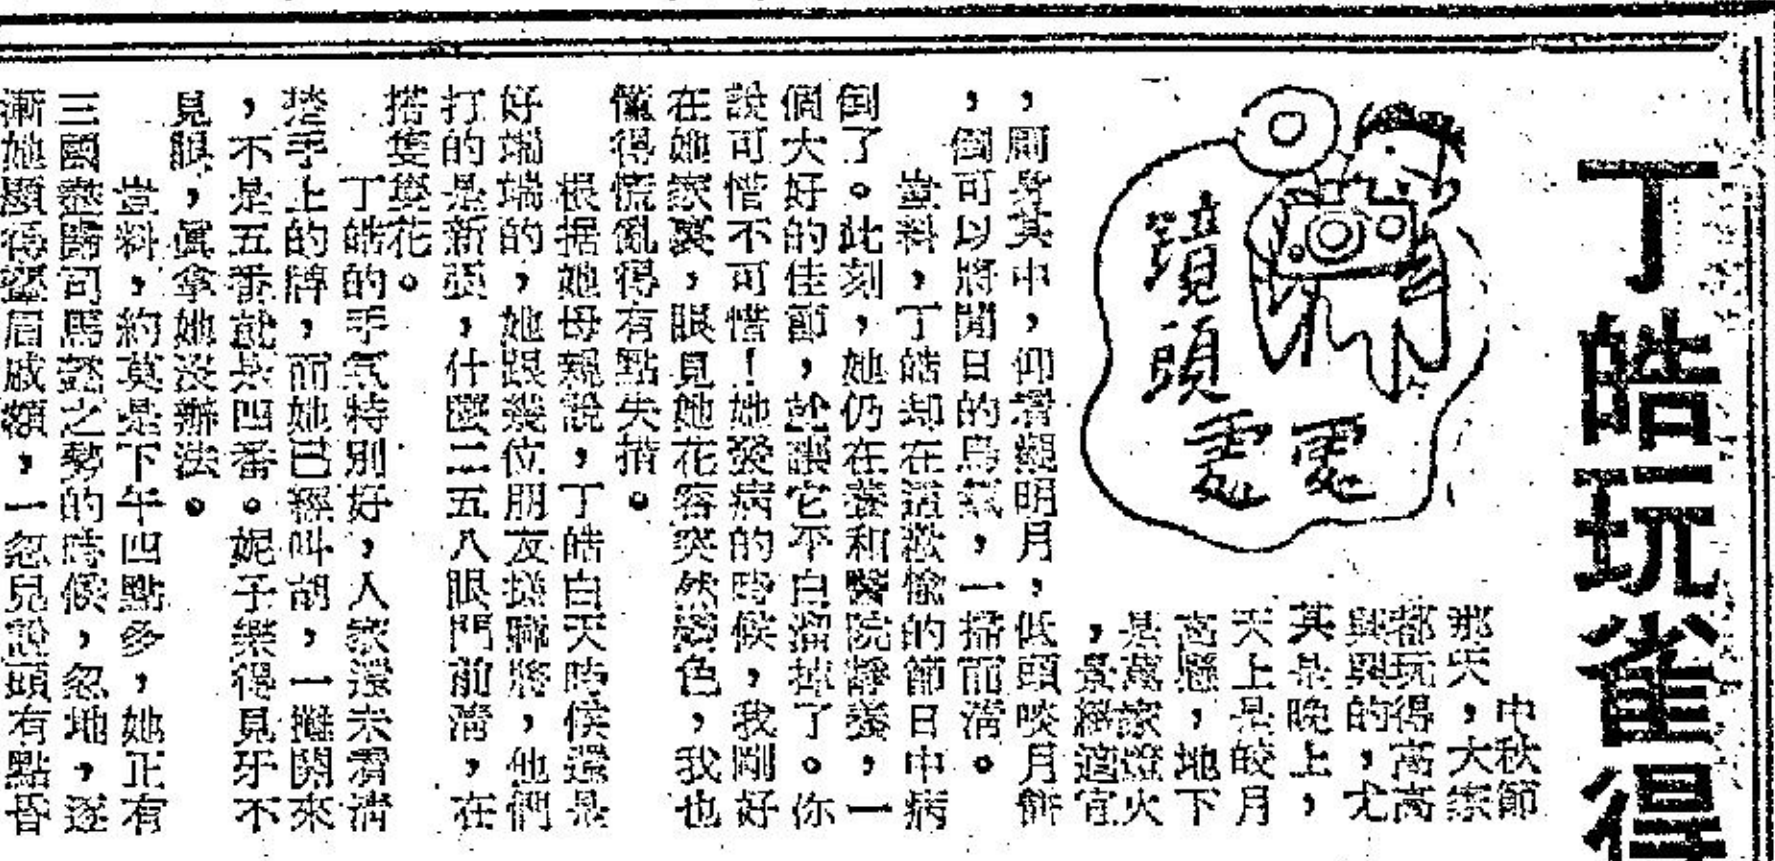 丁皓玩雀得
鏡頭
電電
中秋節
那天，大家
都玩得高高
興興的，尤
其是晚上，
天上是皎月
高懸，地下
是萬家燈火
，景緻適宜
，廁身其中，仰觀明月，低頭啖月餅
，倒可以將閒日的鳥氣，一掃而清。
豈料，丁皓却在這歡愉的節日中病
倒了。此刻，她仍在養和醫院靜養，一
個大好的佳節，就讓它平白溜掉了。你
說可惜不可惜！她發病的時候，我剛好
在她家裏，眼見她花容突然變色，我也
慌亂得有點失措。
根据她母親說，丁皓白天時候還是
好端端的，她跟幾位朋友搓麻將，他們
打的是新張，什麼二五八眼門前清，在
搭隻與花。
丁皓的手氣特別好，人家還未清
手上的牌，而她已經叫胡，一攤開來
，不是五番就是四番。妮子樂得見牙不
見眼，眞拿她沒辦法。
豈料，約莫是下午四點多，她正有
三國司馬懿之勢的時候，忽地，逐
漸她顯得蹙眉慼額，一忽兒說頭有點昏